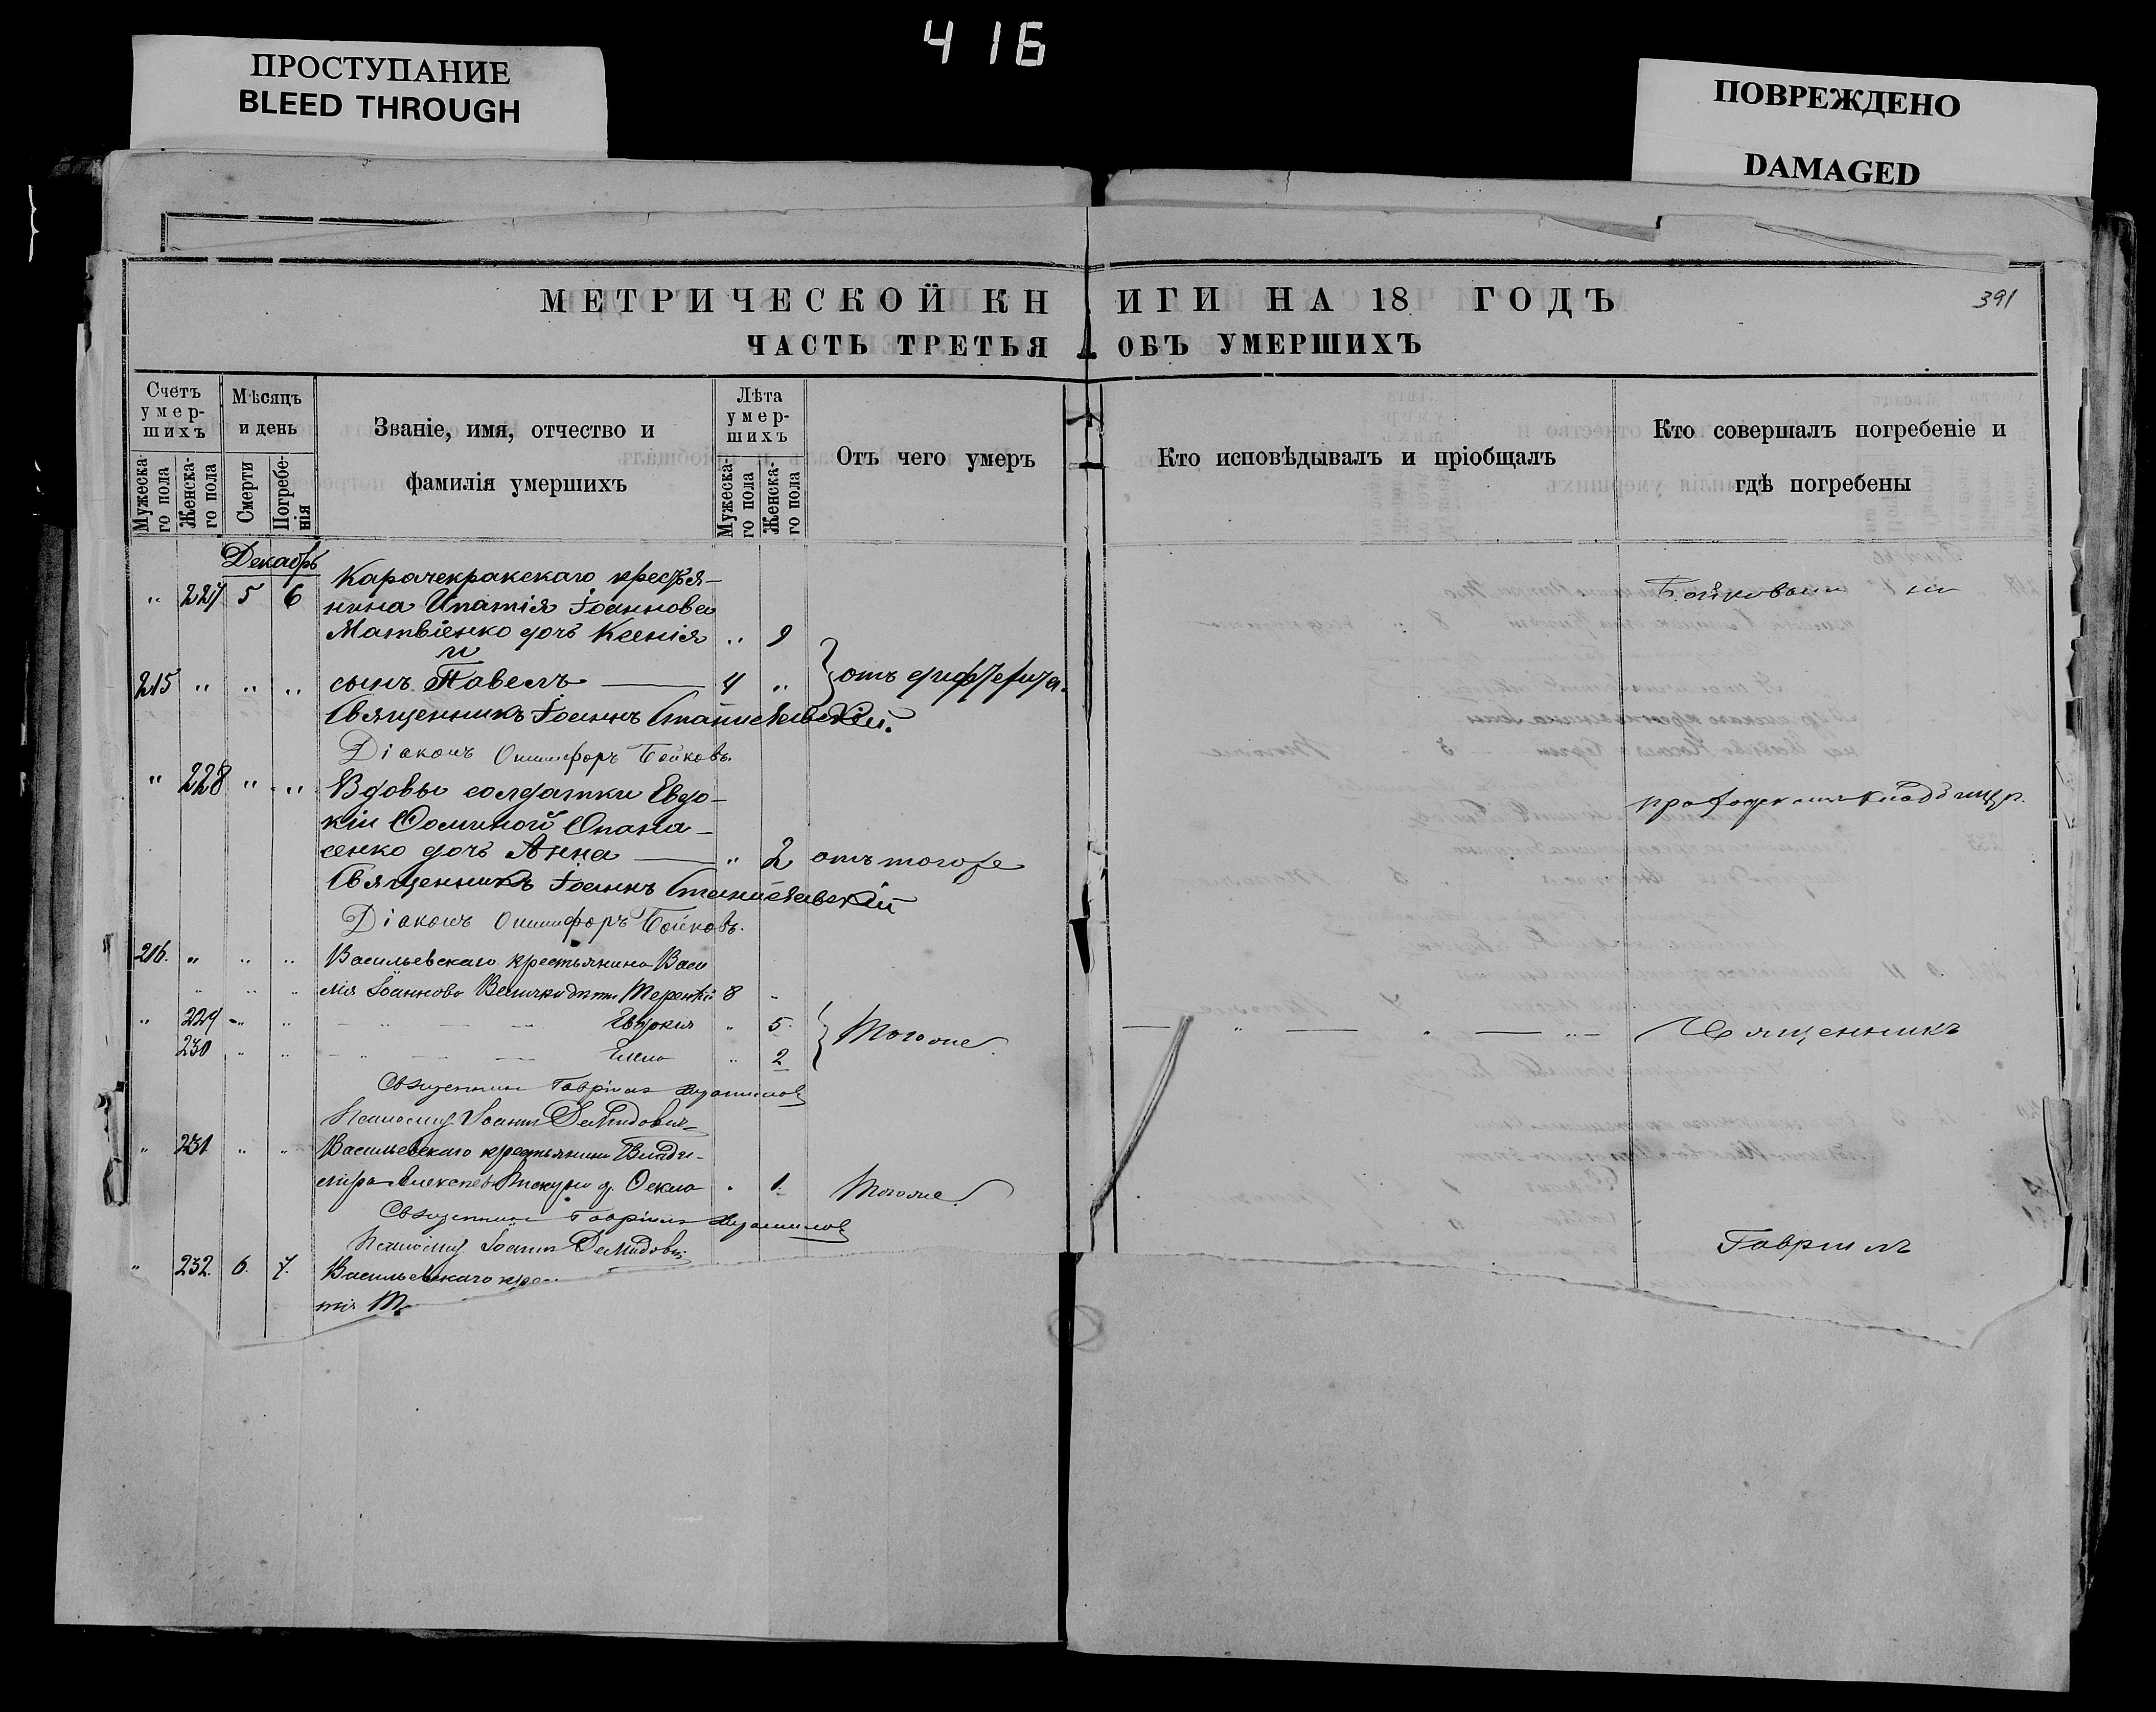 416
ПРОСТУПАНИЕ
BLEED THROUGH
ПОВРЕЖДЕНО
DAMAGED
МЕТРИЧЕСКОЙ КНИГИ НА 18 ГОДЪ
391
ЧАСТЬ ТРЕТЬЯ ОБЪ УМЕРШИХЪ
Счетъ умер-шихъ
Мужеска-го пола
Женска-го пола
Мѣсяцъ и день
Смерти
Погребе-нія
Званіе, имя, отчество и
фамилія умершихъ
Лѣта умер-шихъ
Мужеска-го пола
Женска-го пола
Отъ чего умеръ
Кто исповѣдывалъ и пріобщалъ
Кто совершалъ погребеніе и
гдѣ погребены
Декабрь
Карачекракскаго крестья-
" 227 5 6 нина Ипатія Іоаннова
Матвіенко дочь Ксенія " 9
и
215 " " " сынъ Павелъ — 4 " } отъ дифтерита.
Священникъ Іоаннъ Станиславскій.
Діаконъ Онисифоръ Бойковъ.
" 228 " " Вдовы солдатки Евдо-
кіи Ѳоминой Опана-
сенко дочь Анна — " 2 отъ тогоже
Священникъ Іоаннъ Станиславскій
Діаконъ Онисифоръ Бойковъ.
216. " " " Васильевскаго крестьянина Васи
лія Іоаннова Велички дѣти Терентій 8 "
" 229 " " Евдокія " 5. } Тогоже
230 " " Елена " 2
Священникъ Гавріилъ
Псаломщ Іоаннъ Демидовичъ
" 231 " " Васильевскаго крестьянина Влади-
міра Алексѣева д. Ѳекла " 1. Тогоже
Священникъ Гавріилъ
Псаломщ Іоаннъ Демидович
" 232. 6. 7. Васильевскаго кре
тія
на
Священникъ
Гавріилъ